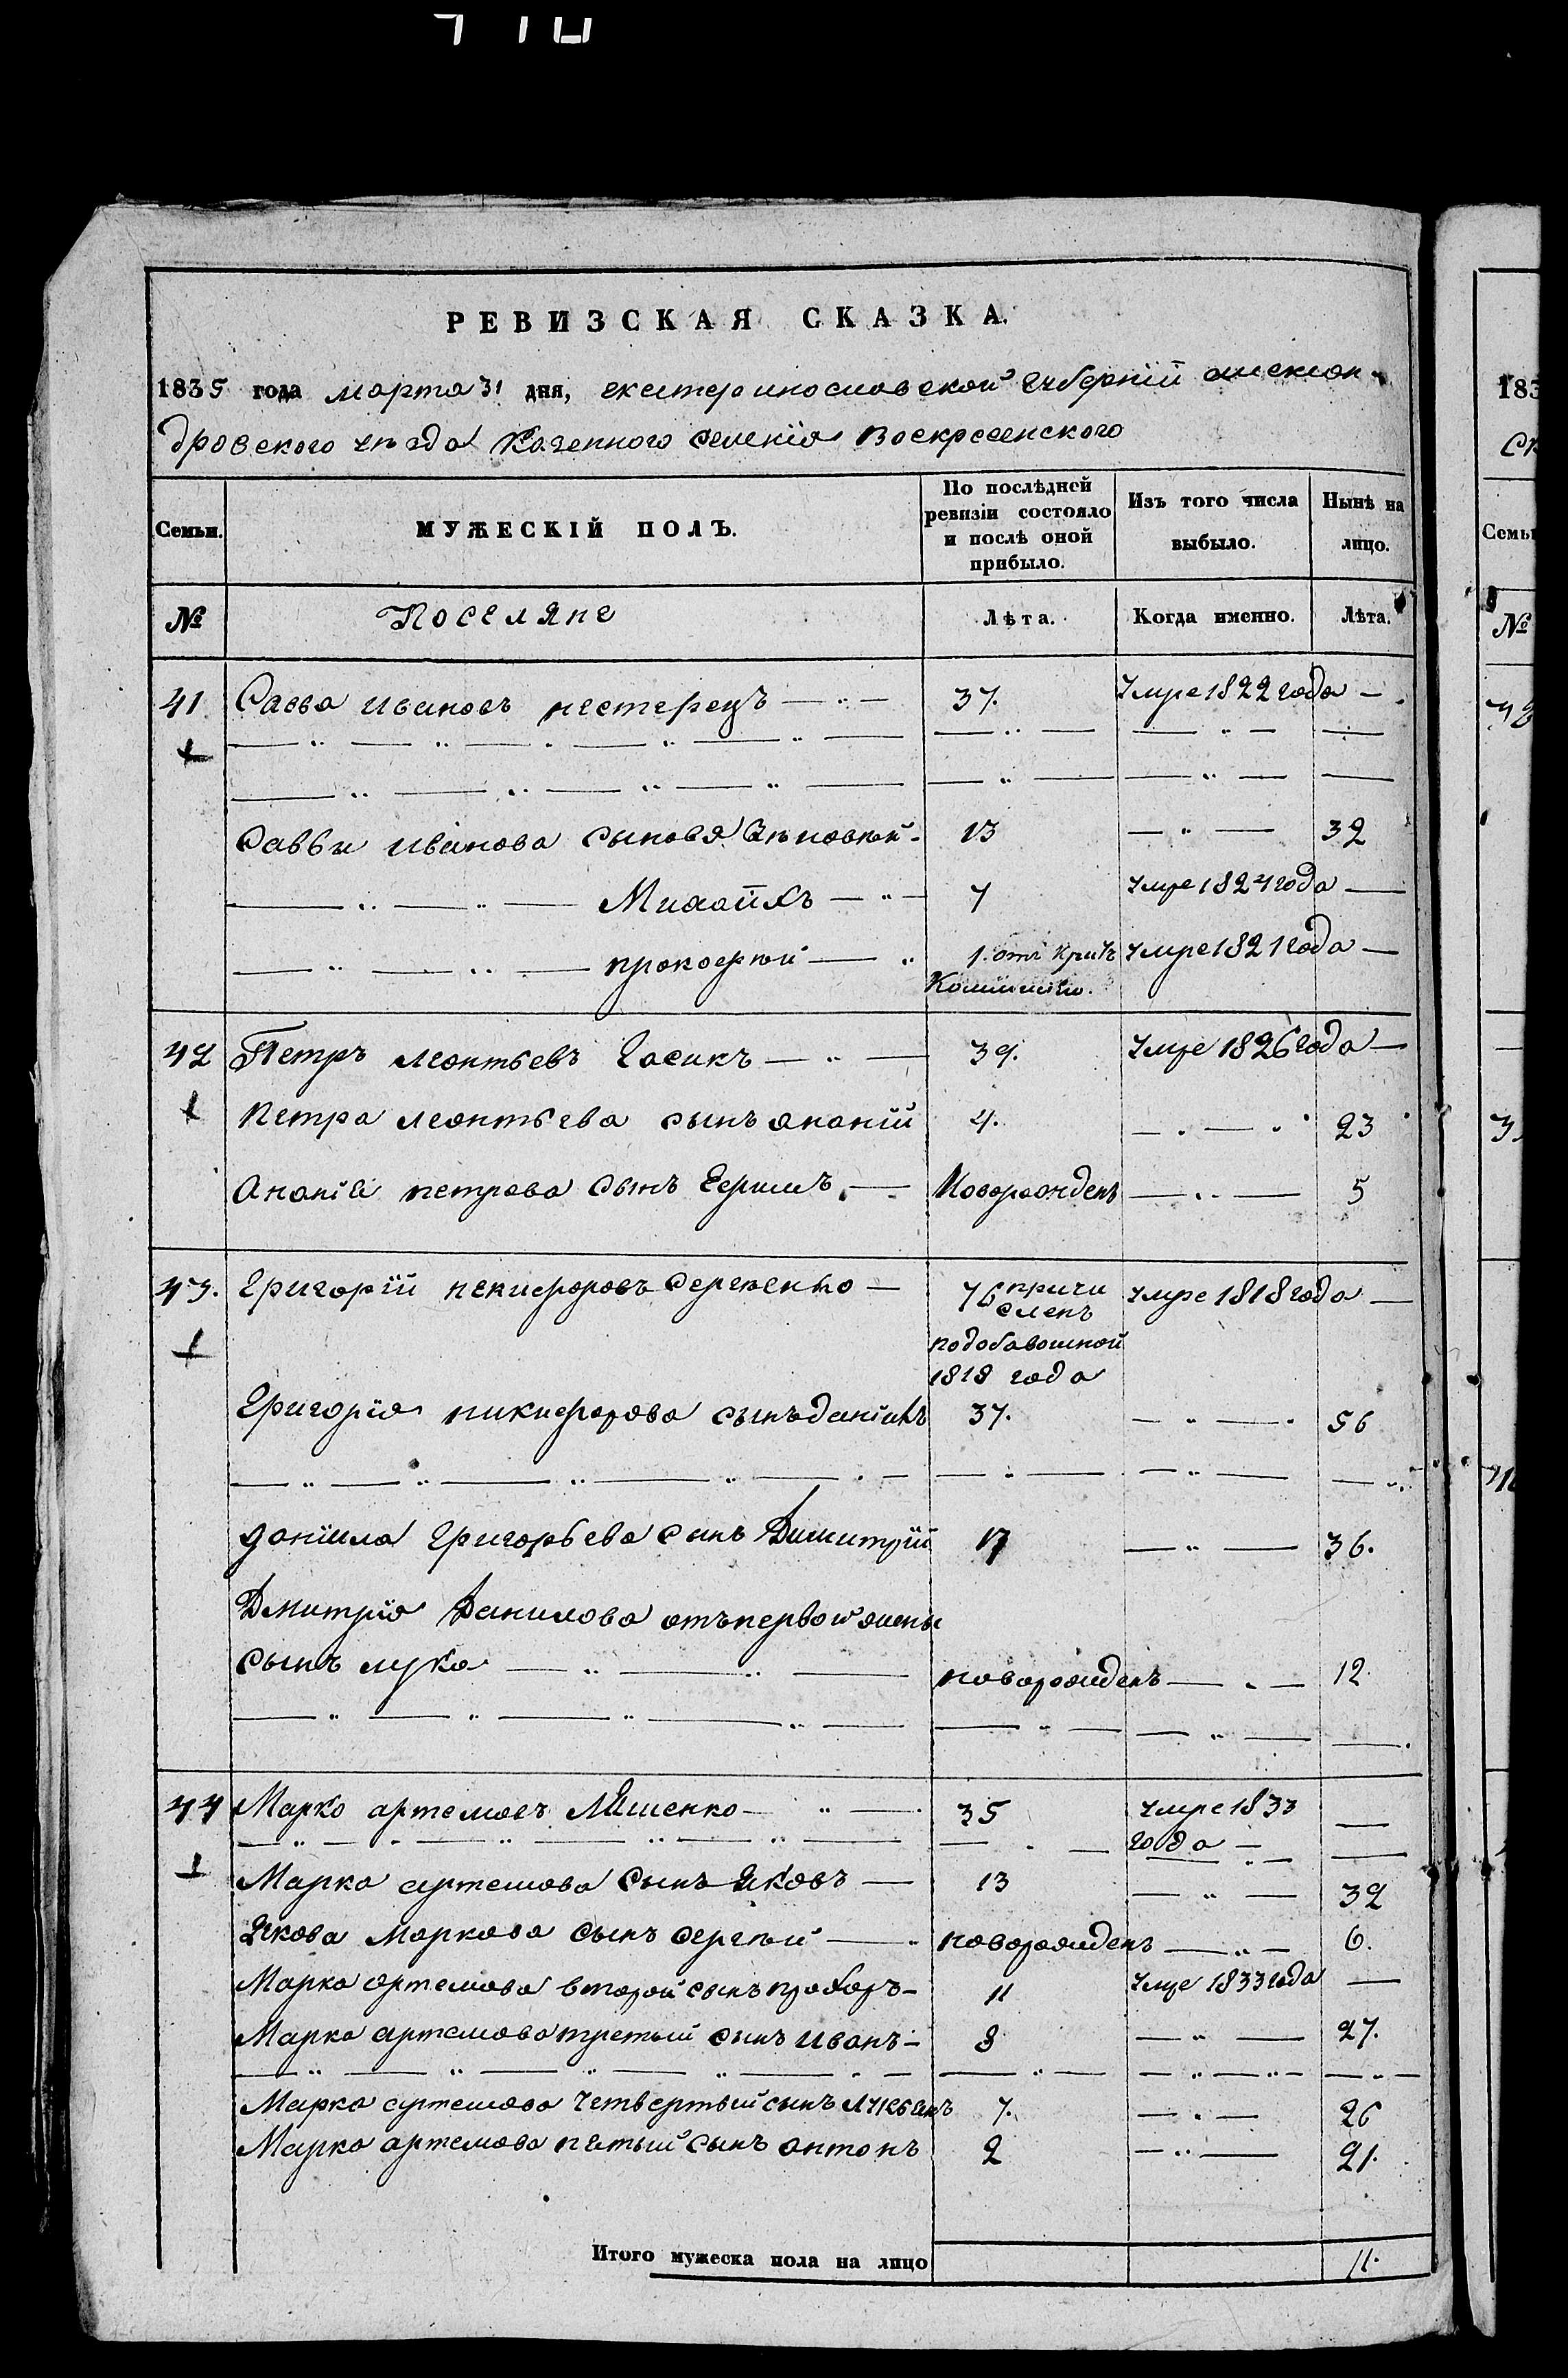 РЕВИЗСКАЯ СКАЗКА.
1835 года марта 31 дня, екатеринославской губерній алексан-
дровского уѣзда Казенного селенія Воскресенского
Семьи. МУЖЕСКІЙ ПОЛЪ. По послѣдней ревизіи состояло и послѣ оной прибыло. Изъ того числа выбыло. Нынѣ на лицо.
№ Поселяне Лѣта. Когда именно. Лѣта.
41 Савва ивановъ нестерецъ 37. умре 1822 года
Саввы иванова сыновя Зѣновѣй 13 32
Михайлъ 7 умре 1824 года
прокофѣй 1. умре 1821 года
42 Петръ леонтьевъ Гасикъ 39. умре 1826 года
Петра леонтьева сынъ ананій 4. 23
Ананія петрова сынъ Ефимъ Новорожденъ 5
43. Григорій никифоровъ Сергѣенко 76 причи умре 1818 года
сленъ
подобавошной
1818 года
Григорія никифорова сынъ даніилъ 37. 56
Даніила григорьева сынъ Димитрій 17 36.
Дмитрія Данилова отъ первой жены
сынъ лука новорожденъ 12
44 Марко артемовъ Ляшенко 35 умре 1833
года
Марка артемова сынъ Яковъ 13 32
Якова Маркова сынъ сергѣй новорожденъ 6.
Марка артемова второй сынъ прохоръ 11 умре 1833 года
Марка артемова третый сынъ иванъ 8 27.
Марка артемова четвертый сынъ лукьянъ 7. 26
Марка артемова пятый сынъ антонъ 2 21.
Итого мужеска пола на лицо 11.
183
№